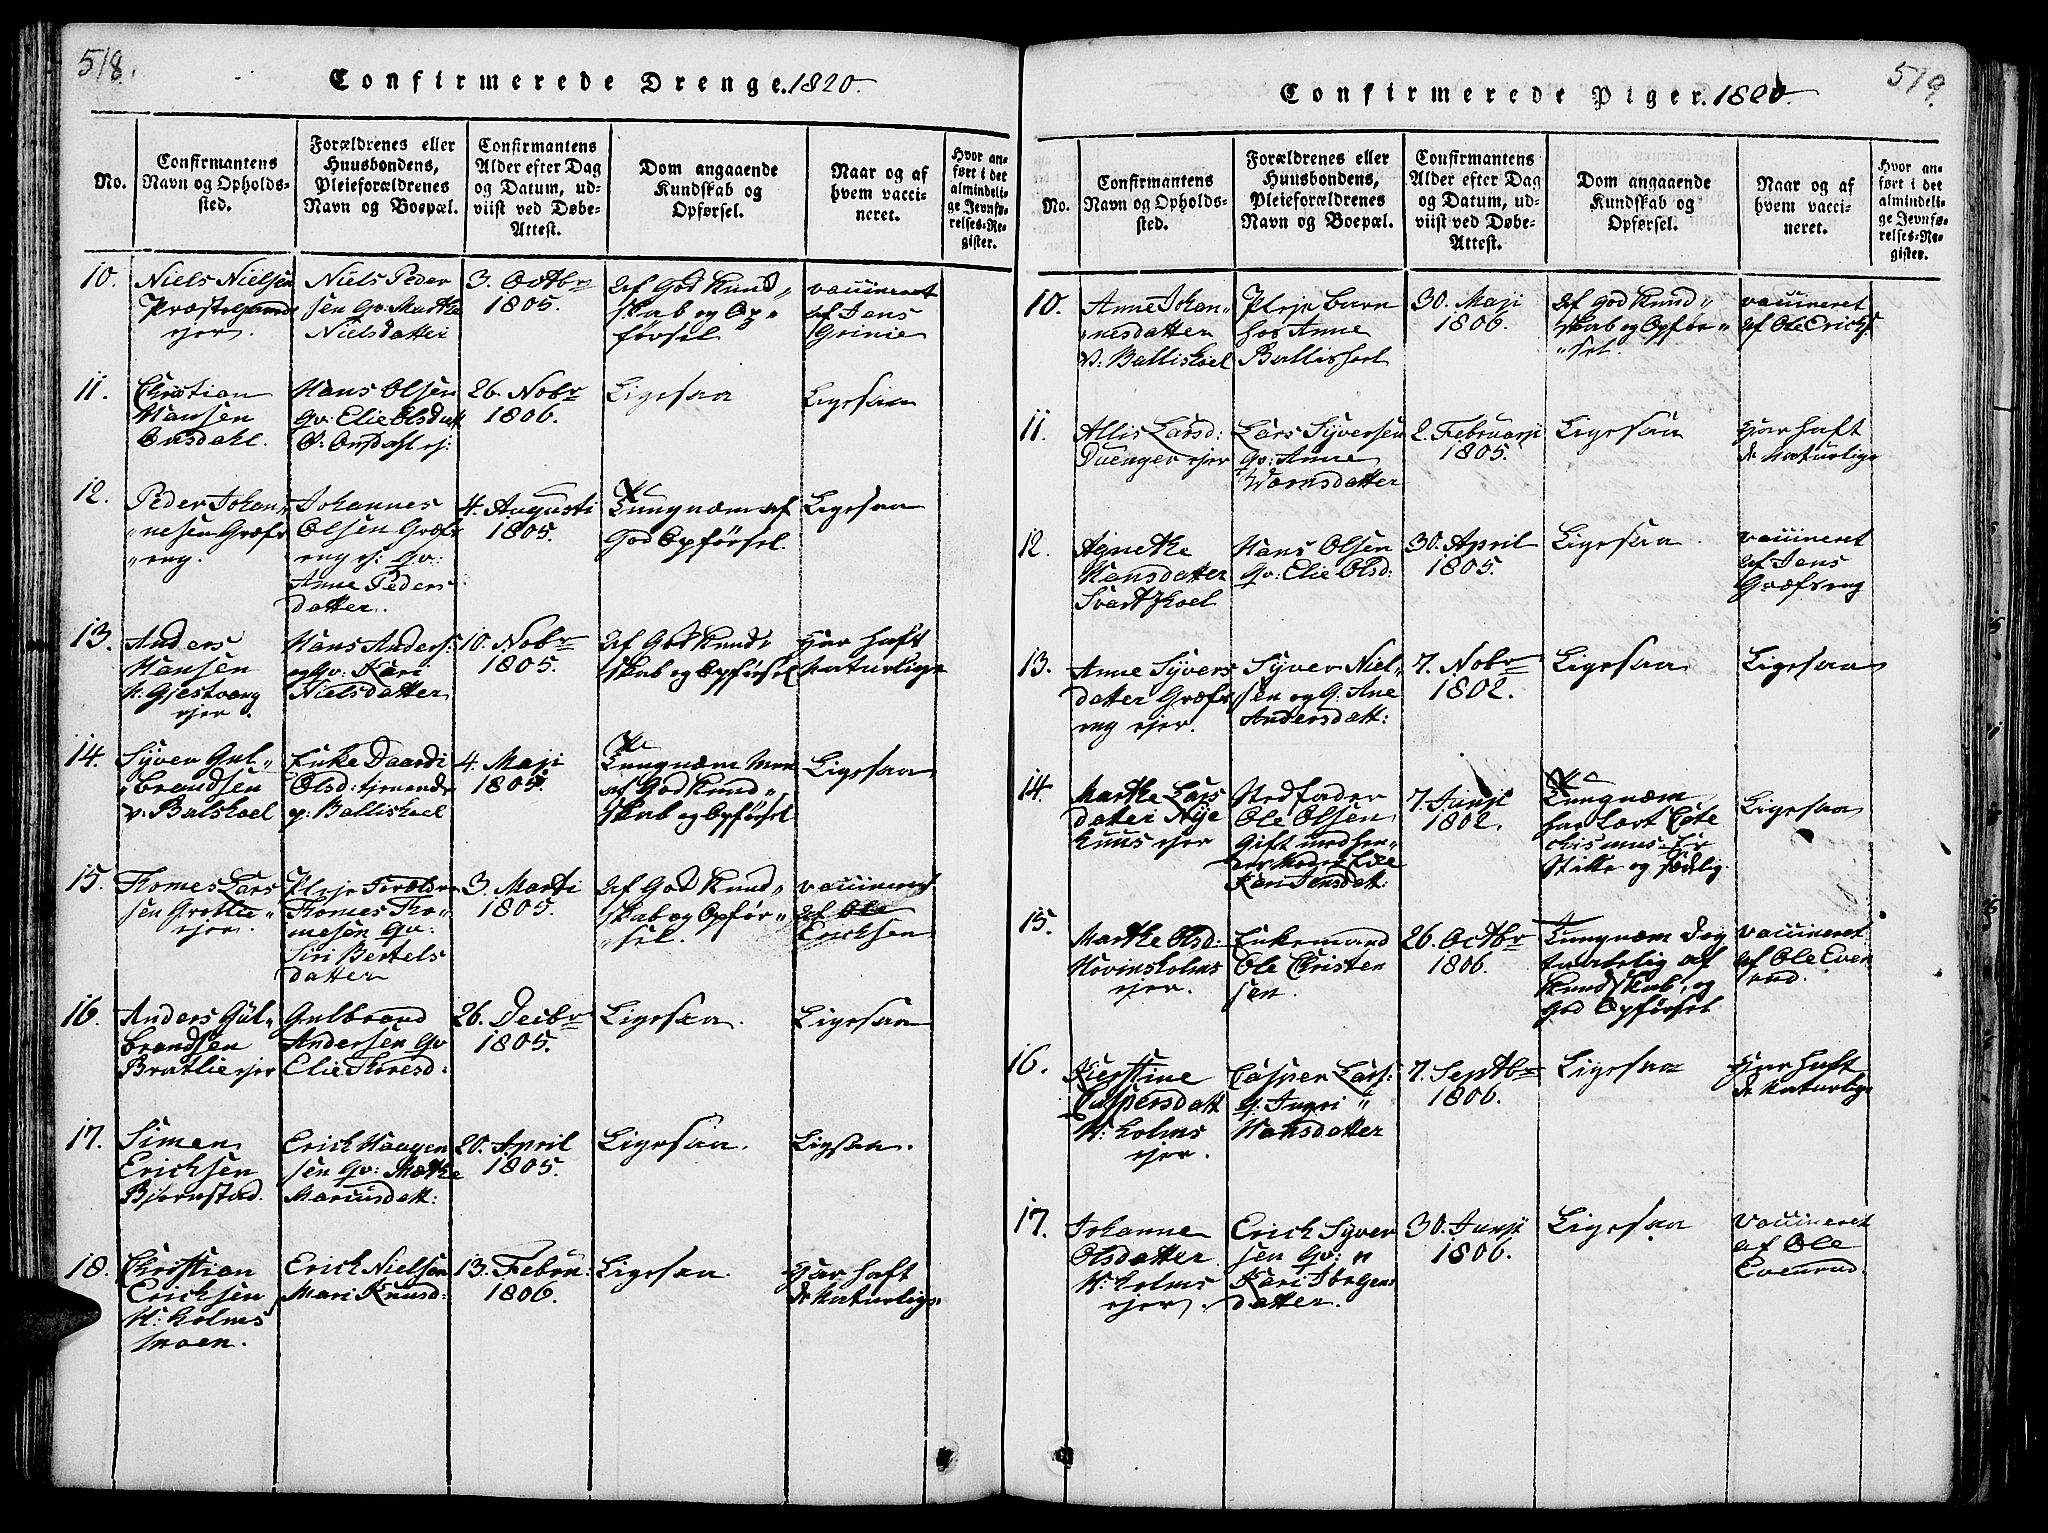 518.
Confirmerede Drenge. 1820.
No.
Confirmantens
Navn og Opholds-
sted.
Forældrenes eller
Huusbondens,
Pleieforældrenes
Navn og Boepæl.
Confirmantens
Alder efter Dag
og Datum, ud-
viist ved Døbe-
Attest.
Dom angaaende
Kundskab og
Opførsel.
Naar og af
hvem vacci-
neret.
Hvor an-
ført i det
almindeli-
ge Jevnfø-
relses-Re-
gister.
10.
Niels Nielsen
Præstegaards
ejer.
Niels Peder
sen Gv. Marthe
Nielsdatter
3. Octbr
1805.
af God Kund„
skab og Op„
førsel
vaccineret
af Jens
Grinie
11.
Christian
Hansen
Onsdahl.
Hans Olsen
gv: Elie Olsdatt
v: Onsdahl ej:
26. Nobr
1806.
Ligesaa
Ligesaa
12.
Peder Johan„
„nesen Græfs
„eng.
Johannes
Olsen Græfs
eng ej: gv:
Anne Peders
datter.
4. Augusti
1805.
Tungnæm af
God Opførsel.
Ligesaa
13.
Anders
Hansen
N: Gjestvang
ejer.
Hans Anders:
og Gv: Kari
Nielsdatter
10. Nobr
1805.
af God Kund„
skab og Opførsel
Har haft
Naturlige
14.
Syver Gul„
„brandsen
v: Balskoel
Enke Daardi
Olsd: tjenende
p: Balliskoel
4. Maji
1805.
Tungnæm Men
af God Kund„
skab og Opførsel
Ligesaa
15.
Thomes Lars
sen Grøtlie„
ejer.
Pleje Forældre
Thomes Tho„
mesen gv:
Siri Bertels
datter
3. Marti
1805.
af God Kund„
skab og Opfør„
„sel.
vaccineret
af Ole
Ericksen
16.
Anders Gul„
brandsen
Bratlie ejer
Gulbrand
Andersen Gv
Elie Thoresd:
26. Decbr
1805.
Ligesaa.
Ligesaa
17.
Simen
Ericksen
Bjørnstad.
Erick Haagen
sen Gv: Marthe
Marcusdatt:
20. April
1805.
Ligesaa.
Ligsaa.
18.
Christian
Ericksen
N: holms
moen.
Erick Nielsen
Mari Knusd:
13. Febru:
1806.
Ligesaa.
Har haft
de Naturlige
519.
Confirmerede Piger. 1820.
No.
Confirmantens
Navn og Opholds-
sted.
Forældrenes eller
Huusbondens,
Pleieforældrenes
Navn og Boepæl.
Confirmantens
Alder efter Dag
og Datum, ud-
viist ved Døbe-
Attest.
Dom angaaende
Kundskab og
Opførsel.
Naar og af
hvem vacci-
neret.
Hvor an-
ført i det
almindeli-
ge Jevnfø-
relses-Re-
gister.
10.
Anne Johan„
„nesdatter
v: Balliskoel
Pleje barn
hos Anne
Balliskoel
30. Maji
1806.
af God Kund„
skab og Opfør„
„sel.
vaccineret
af Ole Ericks
11.
Allis Larsd:
Duenger ejer
Lars Syversen
gv: Anne
2. Februarji
1805.
Ligesaa
Har haft
de Naturlige
12.
Agnethe
Hansdatter
Svartskoel
Hans Olsen
gv: Elie Olsd:
30. April
1805.
Ligesaa.
vaccineret
af Jens
Græfseng
13.
Anne Syvers
datter Græfs
eng ejer.
Syver Niel„
sen og G: Ane
Andersdatt:
7. Nobr
1802.
Ligesaa
Ligesaa
14.
Marthe Lars
datter Nye
huus ejer
Stedfader
Ole Olsen
Gift med hen„
des Moder
Kari Jensdatt:
7. Junji
1802.
Tungnæm
har Lært Cate
chismus Er
Stille og sædlig.
Ligesaa
15.
Marthe Olsd:
Hovinsholms
ejer.
Enkemand
Ole Christen
sen.
26. Octbr
1806.
Tungnæm Dog
taalelig af
Kundskab, og
God Opførsel
vaccineret
af Ole Even
rud.
16.
Kierstine
Caspersdatt
N: holms
ejer.
Casper Lars:
g: Ingri „
Hansdatter
7. Septbr
1806.
Ligesaa
Har haft
de Naturlige
17.
Johanne
Olsdatter
N: holms
ejer.
Erick Syver
sen Gv: „
Kari Jørgens
datter.
30. Junji
1806.
Ligesaa
Vaccineret
af Ole
Evenrud.